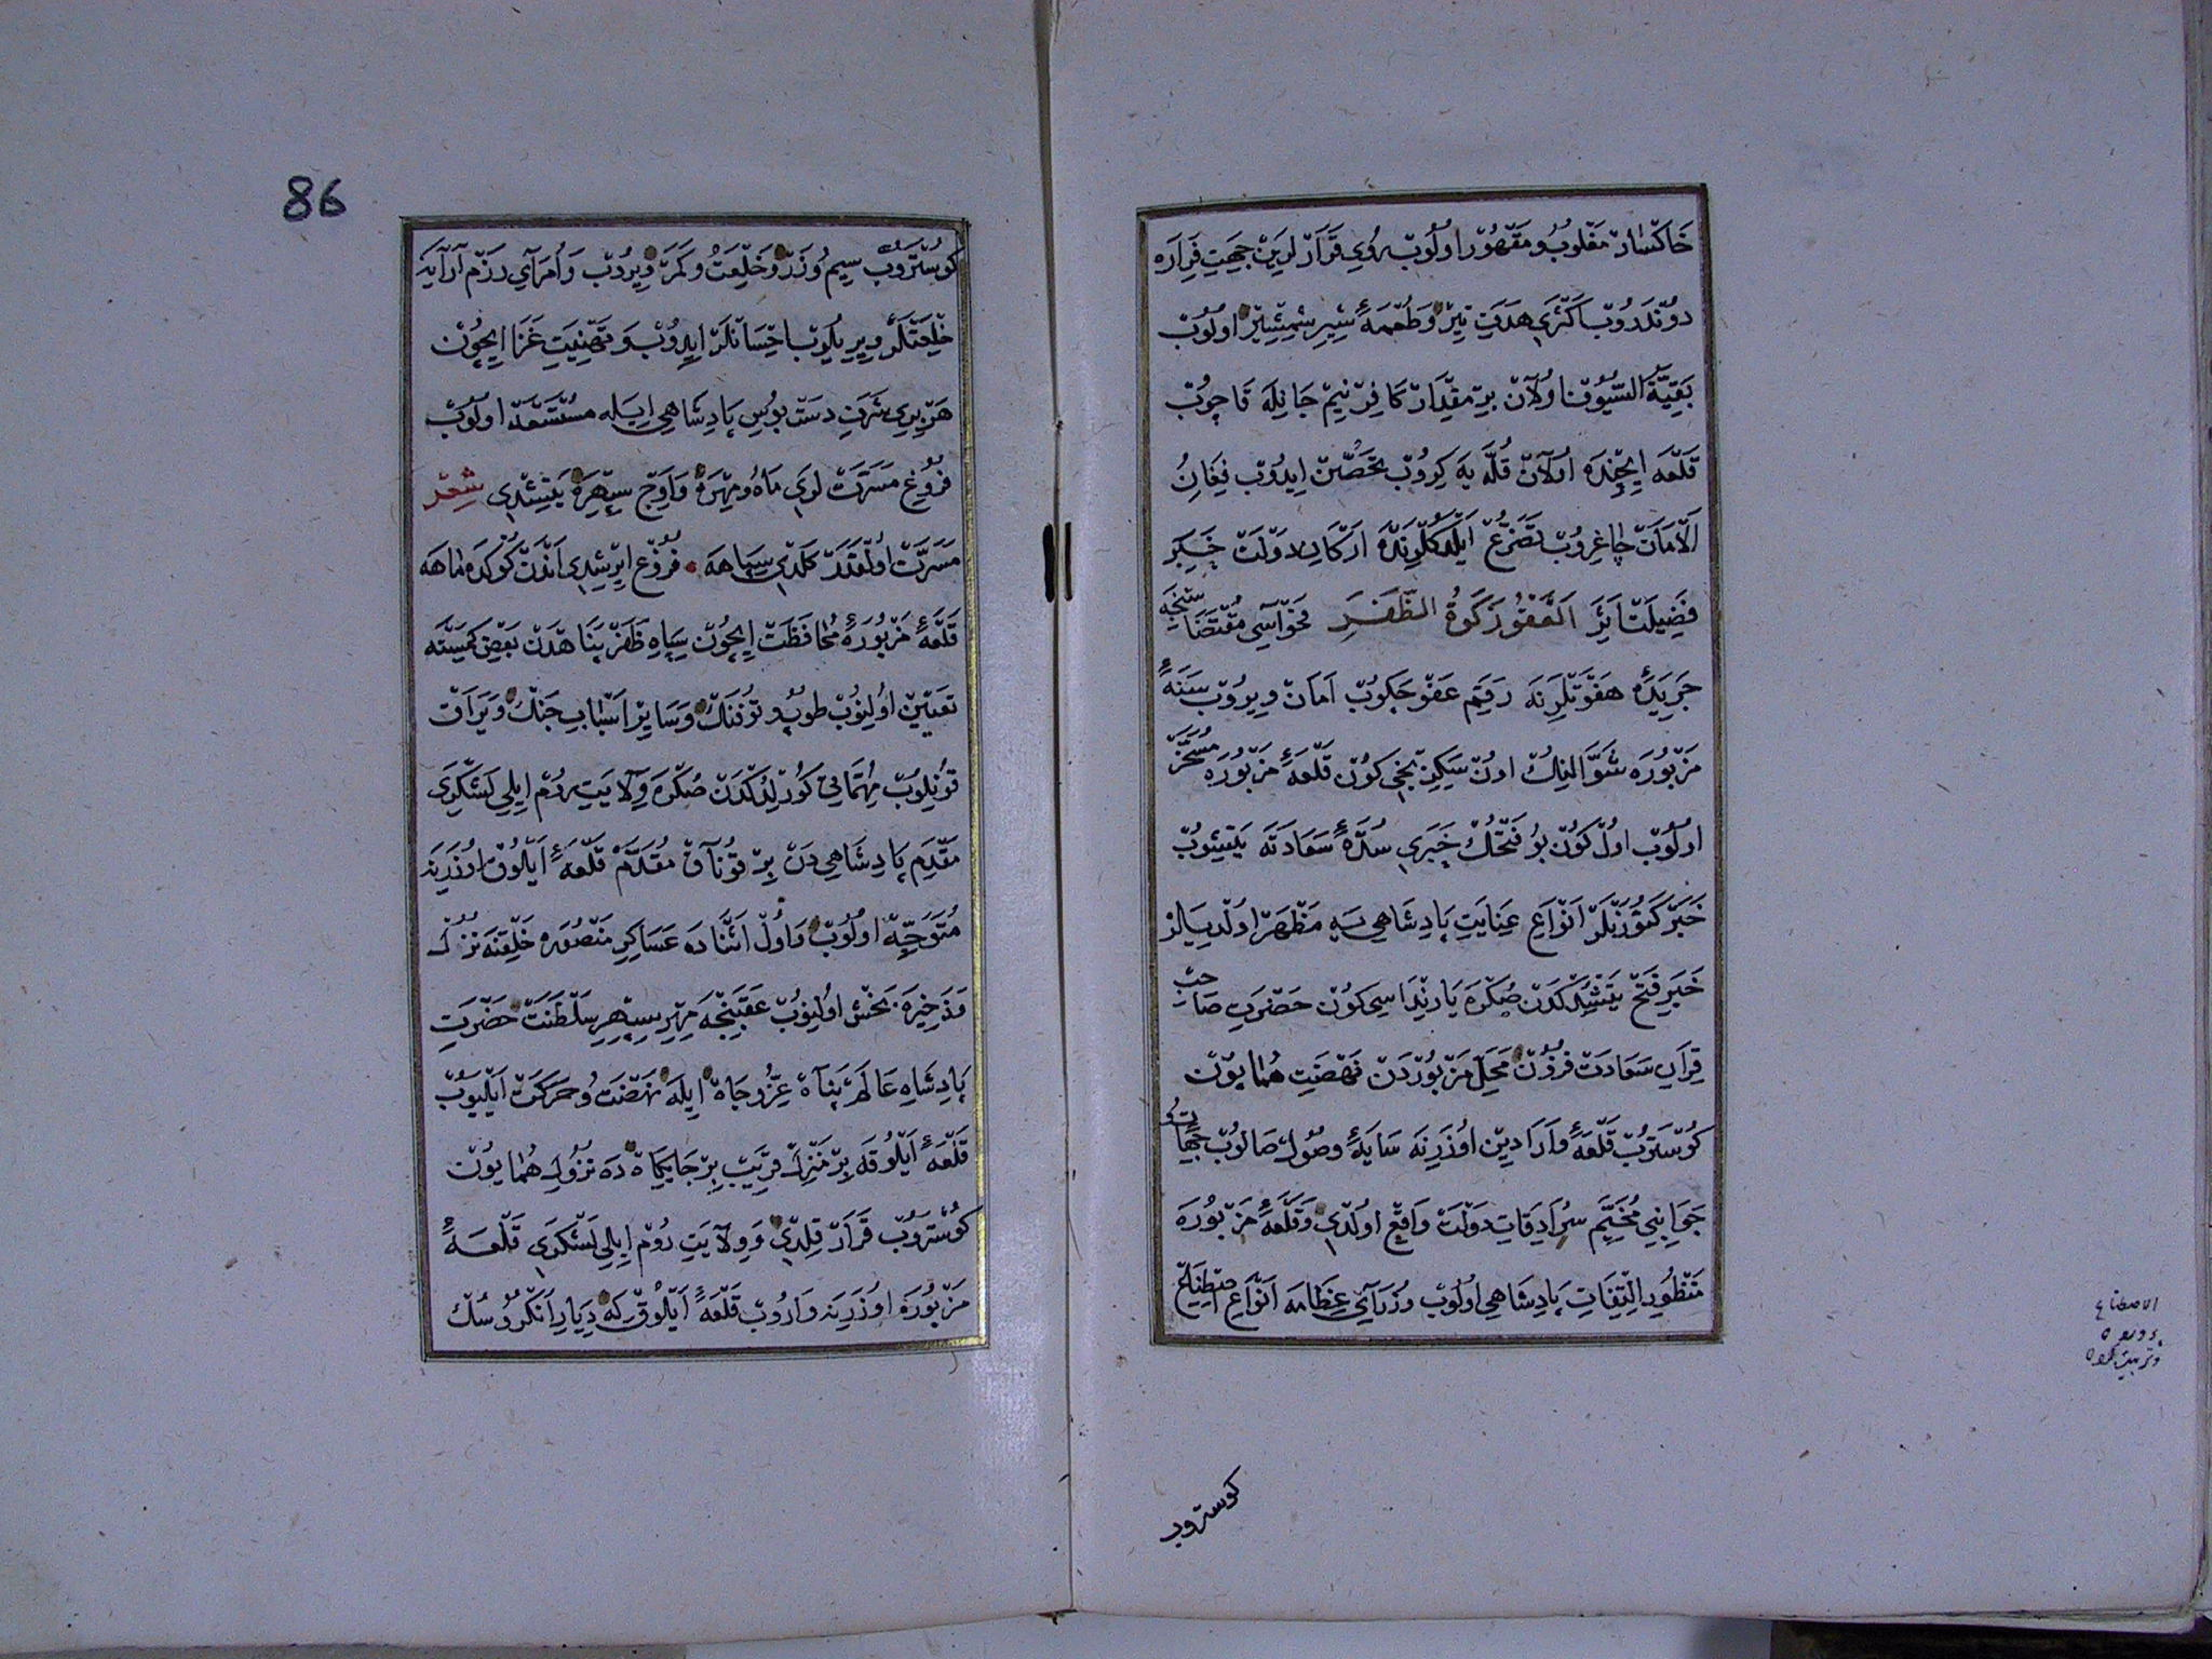 خَاكْسَارْ مَغْلُوبُ و مَقْهُورْ اولُوبْ رُويِ قَرَارْلَرِينْ جِهَتِ فِرَارَه
دونْدَرُوبْ اَكْثَرِى هَدَفِ تِيرْ وَ طُعْمَهٔ شِيرِ شِمْشِيرْ اولُوبْ
بَقِيَّةُ السُّيُوفْ اولَانْ بِرْ مِقْدَارْ كَافِرْ نِيمْ جَانِلَه قَاچُوبْ
قَلْعَه اِيچِنْدَه اولَانْ قُلَّه يَه كِيرُوبْ تَحَصُّنْ اِيدُوبْ فِغَانِ
اَلْاَمَانْ چَاغِرُوبْ تَضَرُّعْ اَيْلَدُكْلَرِنْدَه اَرْكَانِ دَوْلَتْ خَبَرِ
فَضِيلَتْ اَثَرِ اَلْعَفْوُ زَكَوةُ الظَّفَرِ فَحْوَاسِى مُقْتَضَاسِنْجَه
جَرِيدَهٔ هَفْوَتْلَرِنَه رَقَمِ عَفْو چَكُوبْ اَمَانْ وِيرُوبْ سَنَهٔ
مَزْبُورَه شَوَّالِنِكْ اونْ سَكِزِنْجِى كُونْ قَلْعَهٔ مَزْبُورَه مُسَخَّرْ
اولُوبْ اولْ كُونْ بُو فَتْحُكْ خَبَرِى سُدَّهٔ سَعَادَتَه يَتِيشُوبْ
خَبَرْ كَتُورَنْلَرْ اَنْوَاعِ عِنَايَتِ پَادِشَاهِى يَه مَظْهَرْ اولْدِيلَرْ
خَبَرِ فَتْحْ يَتِشْدُكْدَنْ صُكْرَه يَارِنْدَاسِى كُونْ حَضْرَتِ صَاحِبْ
قِرَانِ سَعَادَتْ فُزُونْ مَحَلِّ مَزْبُورْدَنْ نَهْضَتِ هُمَايُونْ
كُوسْتَرُوبْ قَلْعَهٔ وَارَادِينْ اوزَرِنَه سَايَهٔ وُصُولْ صَالُوبْ جِهَاتُ
جَوَانِبِى مُخَيَّمِ سُرَادِقَاتِ دَوْلَتْ وَاقِعْ اولْدِى وَ قَلْعَهٔ مَزْبُورَه
مَنْظُورِ اِلْتِفَاتِ پَادِشَاهِى اولُوبْ وُزَرَاىِ عِظَامَه اَنْوَاعِ اِصْطِنَاعْ
كوستروب
الاصطناع
پرورده
و تربيت كرده
86
كُوسْتَرُوبْ سِيمُ وزَرْ وَ خِلْعَتْ و كَمَرْ وِيرُوبْ وَ اُمَرَاىِ رَزْم آرَايَه
خِلْعَتْلَرْ وِيرِيلُوبْ اِحْسَانْلَرْ اِيدُوبْ وَ تَهْنِيَتِ غَزَا اِيچُونْ
هَرْ بِرِى شَرَفِ دَسْتْ بُوسِ پَادِشَاهِى اِيلَه مُسْتَسْعَدْ اولُوبْ
فُرُوغِ مَسَرَّتْلَرِى مَاهُ و مِهْرَه وَ اَوْجِ سِپِهْرَه يَتِشْدِى شِعْر
مَسَرَّتْ اولْقَدَرْ كَلْدِى سِپَاهَه • فُرُوغِ اِيرِشْدِى آنْدَنْ كُوكْدَه مَاهَه
قَلْعَهٔ مَزْبُورَه مُحَافَظَتْ اِيچُونْ سِپَاهِ ظَفَرْ پَنَاهْدَنْ بَعْضِى كِمِسْنَه
تَعْيِينْ اولِنُوبْ طُوبْ و تُوفَنْكْ وَ سَايِرْ اَسْبَابِ جَنْكْ و يَرَاقْ
قُونِلُوبْ مُهِمَّاتِى كُورِلْدُكْدَنْ صُكْرَه وِلَايَتِ رُومْ اِيلِى لَشْكَرِى
مَقْدَمِ پَادِشَاهِى دَنْ بِرْ قُونَاقْ مُقَدَّمْ قَلْعَهٔ اَيْلُوقْ اوزَرِينَه
مُتَوَجِّهْ اولُوبْ وَ اولْ اَثْنَادَه عَسَاكِرِ مَنْصُورَه خَلْقِنَه نُزُلْ
وَ ذَخِيرَه بَخْش اولِنُوبْ عَقَبِنْجَه مِهْرِ سِپِهْرِ سَلْطَنَتْ حَضْرَتِ
پَادِشَاهِ عَالَمْ پَنَاهْ عِزُّ و جَاهْ اِيلَه نَهْضَتُ و حَرَكَتْ اَيْلَيُوبْ
قَلْعَهٔ اَيْلُوقَه بِرْ مَنْزِلْ قَرِيبْ بِرْ جَايِكَاهْ دَه نُزُولِ هُمَايُونْ
كُوسْتَرُوبْ قَرَارْ قِلْدِى وَ وِلَايَتِ رُومْ اِيلِى لَشْكَرِى قَلْعَهٔ
مَزْبُورَه اوزَرِينَه وَارُوبْ قَلْعَهٔ اَيْلُوقْ كِه دِيَارِ اَنْكُرُوسُكْ